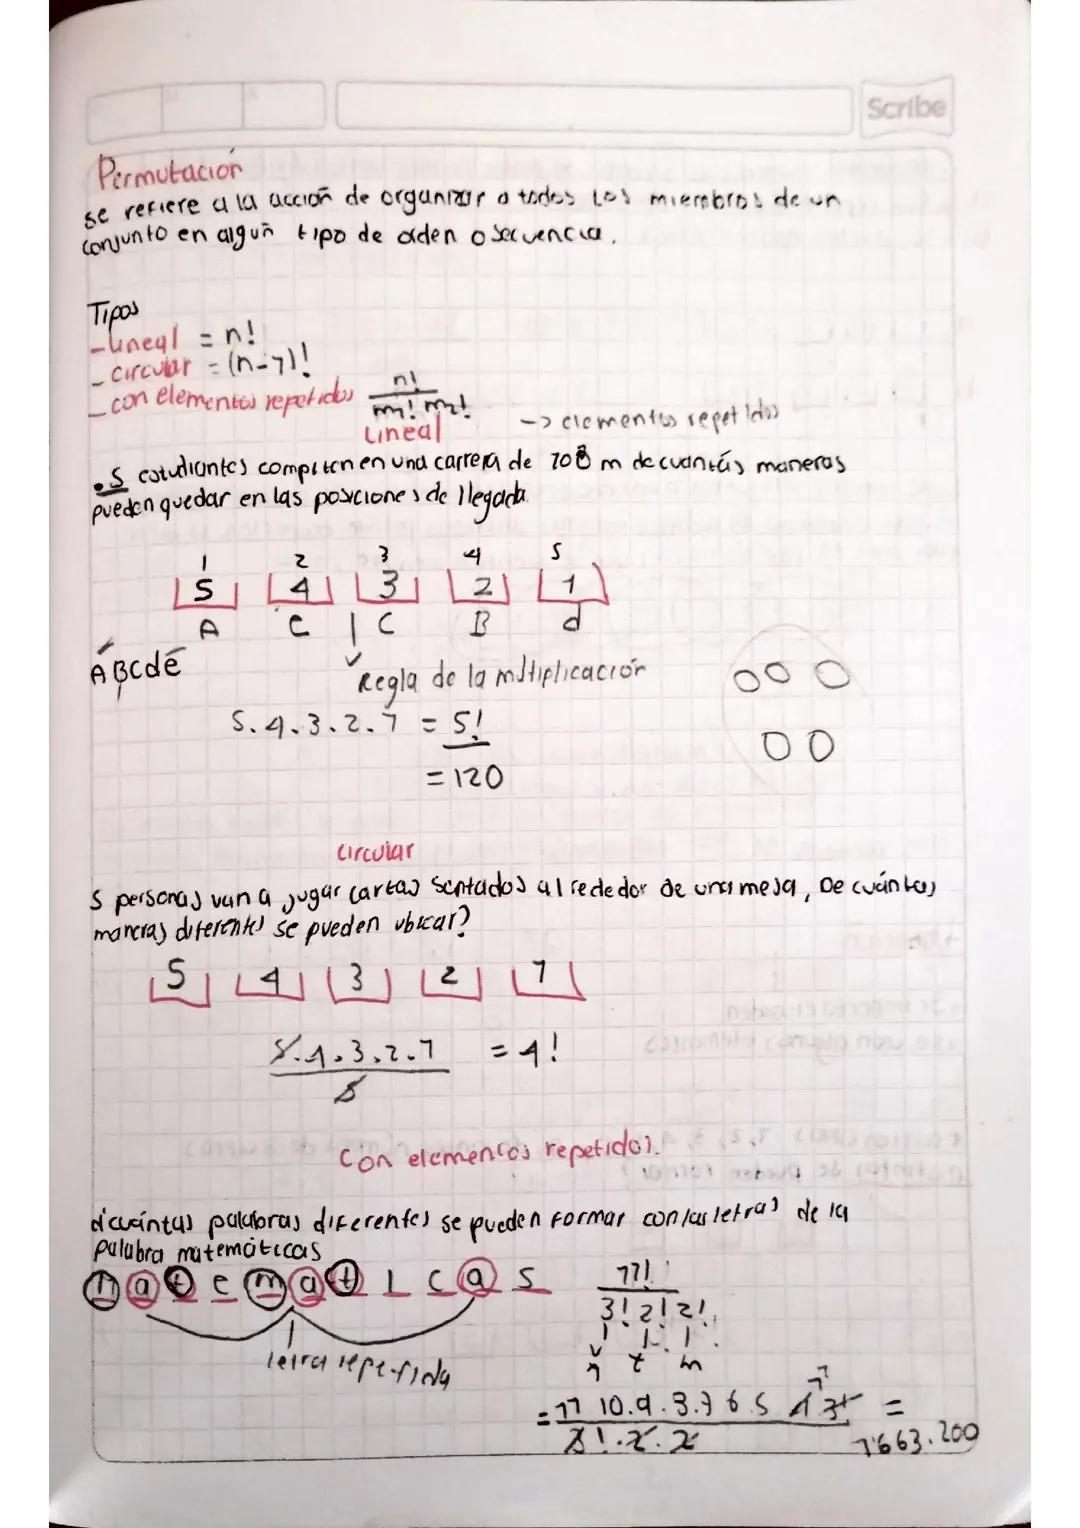 Scribe
Permutación
se refiere a la acción de organizar a todos los miembros de un
conjunto en algun tipo de orden o secuencia.
Tipos
- Lineal = n!
- circular = (n-1)!
- con elementos repetidos n!
m1! m2!
-> elementos repetidos
Lineal
• 5 estudiantes compiten en una carrera de 100 m de cuantás maneras
pueden quedar en las posiciones de llegada.
1 2 3 4 5
5 4 3 2 1
A C C B d
ABCde
Regla de la multiplicación
5.4.3.2.1 = 5!
= 120
circular
5 personas van a jugar cartas sentados al rededor de una mesa, De cuántas
maneras diferentes se pueden ubicar?
5 4 3 2 1
5.4.3.2.1 = 4!
5
Con elementos repetidos.
d'cuántas palabras diferentes se pueden formar con las letras de la
palabra matemáticas
m a t e m a t i c a s
11!
3! 2! 2!
t m
letra repetida
= 11 10.9.8.7 6.5 4 3! =
3!.2.2
1'663.200